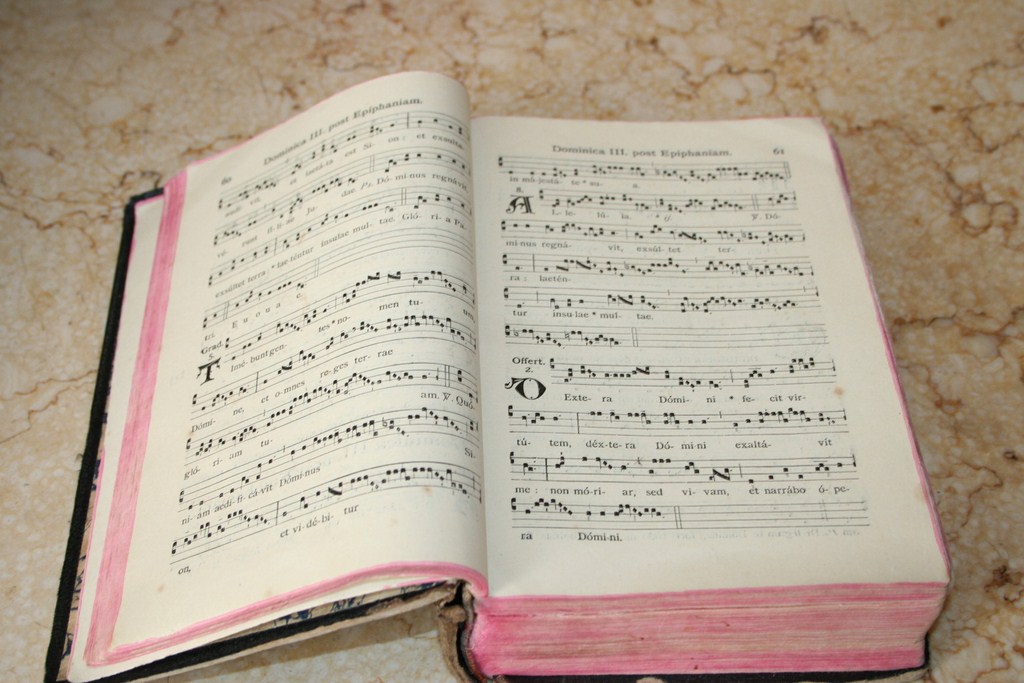 60
Dominica III. post Epiphaniam.
audí- vit, et laetá-ta est Si- on : et exsulta-
vé- runt fí-li-ae Ju- dae Ps. Dó-mi-nus regnávit,
exsúltet terra : * lae-téntur insulae mul- tae. Gló- ri- a Pa-
tri. E u o u a e.
Grad.
5.
Timé-bunt gen- tes * no- men tu- um
Dómi- ne, et o-mnes re-ges ter- rae
gló- ri- am tu- am. ℣. Quó-
ni- am aedi-fi- cá-vit Dóminus Si-
on, et vi-dé-bi- tur
Dominica III. post Epiphaniam. 61
in ma-jestá- te * su- a.
8.
AL-le- lú- ia. * ij ℣. Dó-
mi-nus regná- vit, exsúl-tet ter-
ra : laetén-
tur insu-lae * mul- tae.
Offert.
2.
DExte- ra Dómi- ni * fe- cit vir-
tú- tem, déx-te-ra Dó- mi-ni exaltá- vit
me : non mó-ri- ar, sed vi- vam, et narrábo ó-pe-
ra Dómi-ni.